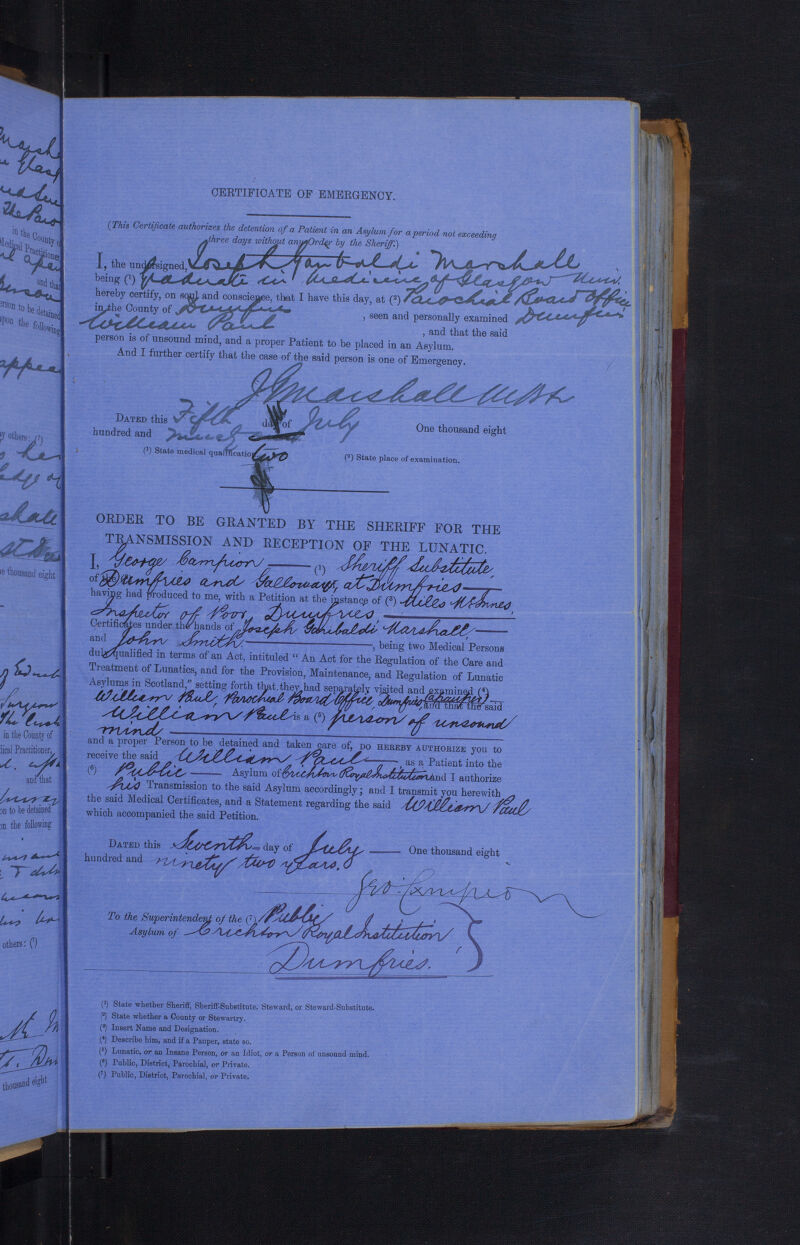 CERTIFICATE OF EMERGENCY.
(This Certificate authorizes the detention of a Patient in an Asylum for a period not exceeding
three days without any Order by the Sheriff.)
I, the undersigned, Joseph Garibaldi Marshall
being (¹) Graduate in Medicine of Glasgow Univ.
hereby certify, on soul and conscience, that I have this day, at (²) Parochial Board Office
in the County of Dumfries, seen and personally examined Dumfries
William Paul, and that the said
person is of unsound mind, and a proper Patient to be placed in an Asylum.
And I further certify that the case of the said person is one of Emergency.
J G Marshall
DATED this Fifth day of July One thousand eight
hundred and two
(¹) State medical qualification
(²) State place of examination.
ORDER TO BE GRANTED BY THE SHERIFF FOR THE
TRANSMISSION AND RECEPTION OF THE LUNATIC.
I, George Campion (¹) Sheriff Substitute
of Dumfries and Galloway, at Dumfries
having had produced to me, with a Petition at the instance of (³) Miles McInnes,
Inspector of Poor, Dumfries
Certificates under the hands of Joseph Garibaldi Marshall
and John Smith, being two Medical Persons
duly qualified in terms of an Act, intituled "An Act for the Regulation of the Care and
Treatment of Lunatics, and for the Provision, Maintenance, and Regulation of Lunatic
Asylums in Scotland," setting forth that they had separately visited and examined (⁴)
William Paul, Parochial Board Office, Dumfries (Pauper) and that the said
William Paul is a (⁵) person of unsound
mind
and a proper Person to be detained and taken care of, DO HEREBY AUTHORIZE you to
receive the said William Paul as a Patient into the
(⁶) Public Asylum of Crichton Royal Institution and I authorize
his Transmission to the said Asylum accordingly; and I transmit you herewith
the said Medical Certificates, and a Statement regarding the said William Paul
which accompanied the said Petition.
DATED this Seventh day of July One thousand eight
hundred and ninety two years.
Geo. Campion
To the Superintendent of the (⁷) Public
Asylum of Crichton Royal Institution,
Dumfries.
(¹) State whether Sheriff, Sheriff-Substitute, Steward, or Steward-Substitute.
(²) State whether a County or Stewartry.
(³) Insert Name and Designation.
(⁴) Describe him, and if a Pauper, state so.
(⁵) Lunatic, or an Insane Person, or an Idiot, or a Person of unsound mind.
(⁶) Public, District, Parochial, or Private.
(⁷) Public, District, Parochial, or Private.